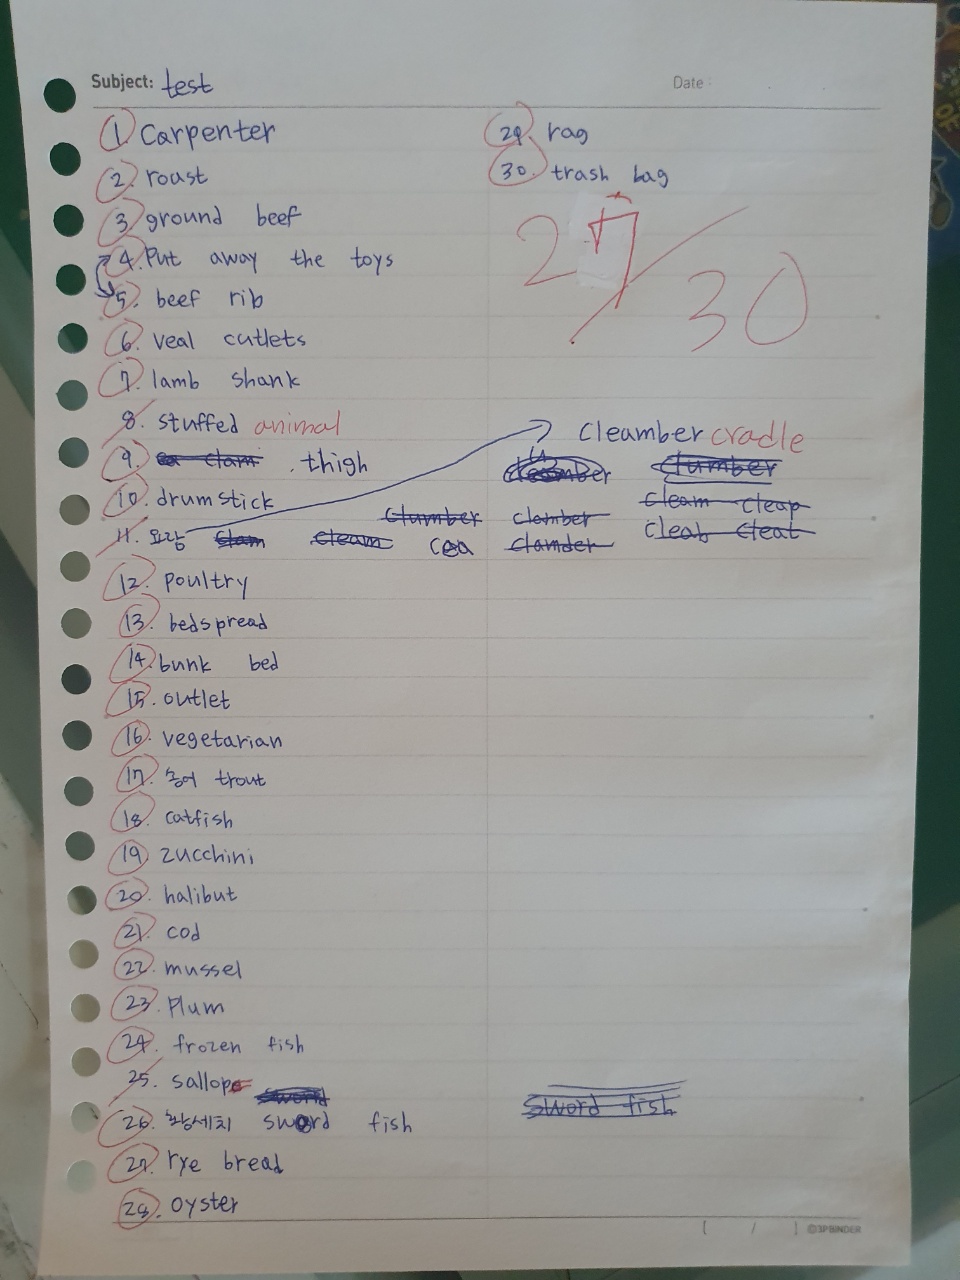 Subject: test
Date :
1. Carpenter
2. roast
3. ground beef
4. Put away the toys
5. beef rib
6. veal cutlets
7. lamb shank
8. stuffed animal
9. clam . thigh
10. drumstick
11. 요람 clam cleam cea
clumber clamber cleam cleap
clamder cleab cleat
cleamber cradle
clumber
12. poultry
13. bedspread
14. bunk bed
15. outlet
16. vegetarian
17. 송어 trout
18. catfish
19. zucchini
20. halibut
21. cod
22. mussel
23. Plum
24. frozen fish
25. sallop
sword
26. 황세치 sword fish
sword fish
27. rye bread
28. oyster
29. rag
30. trash bag
27/30
[ / ] ©3PBINDER